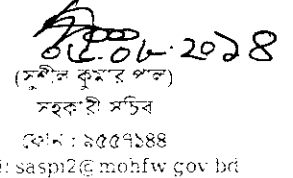 ০৫.০৮.২০১৪
(সুশীল কুমার পাল)
সহকারী সচিব
ফোন : ৯৫৫৭১৪৪
: saspi2@mohfw gov bd